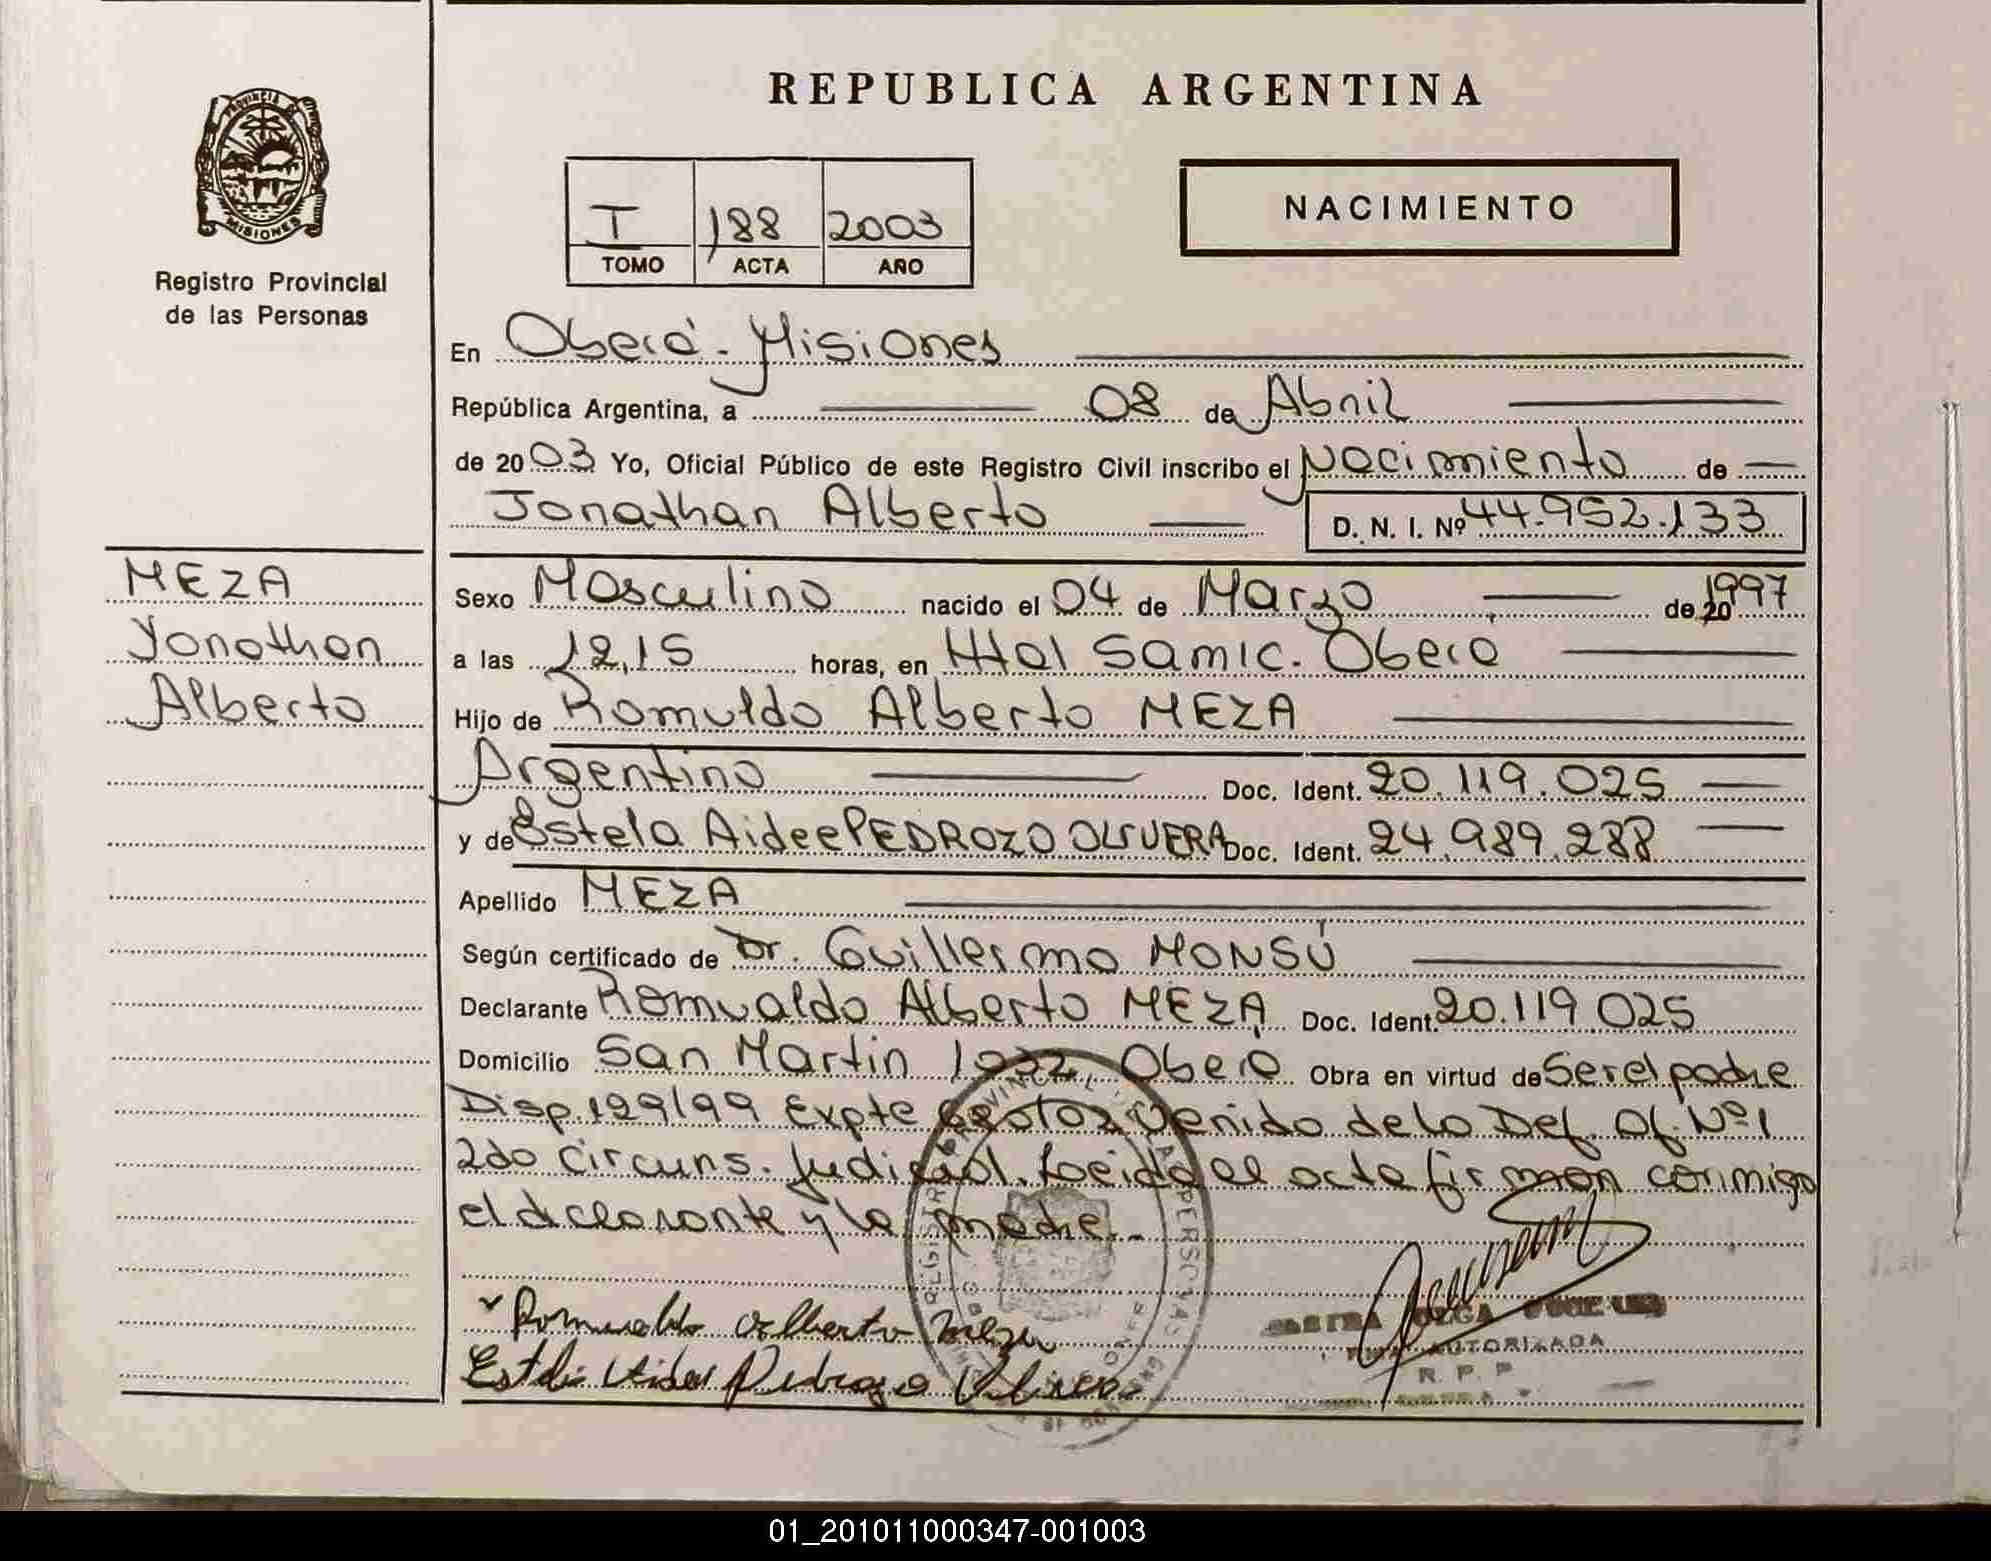 REPUBLICA ARGENTINA
PROVINCIA DE
MISIONES
Registro Provincial
de las Personas
T 188 2003
TOMO ACTA AÑO
NACIMIENTO
En Oberá - Misiones
República Argentina, a 08 de Abril
de 2003 Yo, Oficial Público de este Registro Civil inscribo el Nacimiento de
Jonathan Alberto D. N. I. Nº 44.952.133
MEZA
Yonathan
Alberto
Sexo Masculino nacido el 04 de Marzo de 20 1997
a las 12,15 horas, en Htal Samic. Oberá
Hijo de Romuldo Alberto MEZA
Argentino Doc. Ident. 20.119.025
y de Estela Aidee PEDROZO OLIVERA Doc. Ident. 24.989.288
Apellido MEZA
Según certificado de Dr. Guillermo MONSÚ
Declarante Romualdo Alberto MEZA Doc. Ident. 20.119.025
Domicilio San Martin 1032 Oberá Obra en virtud de Ser el padre
Disp. 129/99 Expte venido de la Def. Of. Nº 1
2do Circuns. Judicial. Leida el acta firman conmigo
el declarante y la madre.-
Romualdo Alberto Meza
Estela Aidee Pedrozo Olivera
OLGA
AUTORIZADA
R. P. P.
01_201011000347-001003